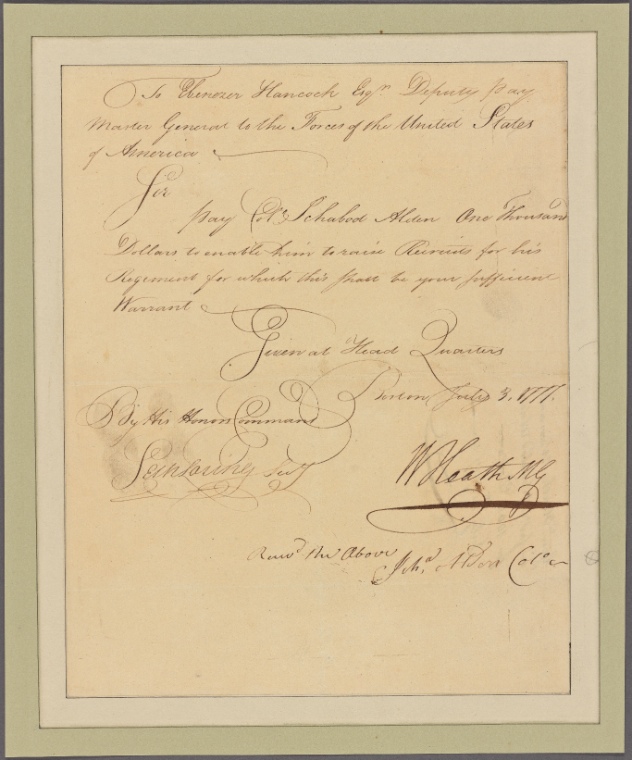 To Ebenezer Hancock Esqr. Deputy Pay
Master General to the Forces of the United States
of America
Sir
Pay Colo. Ichabod Alden One Thousand
Dollars to enable him to raise Recruits for his
Regement for which this shall be your sufficient
Warrant
Given at Head Quarters
Boston July 3, 1777.
By His Honors Command
Seth Loring Secy
W Heath MG
Recd. the Above
Ichd. Alden Colo